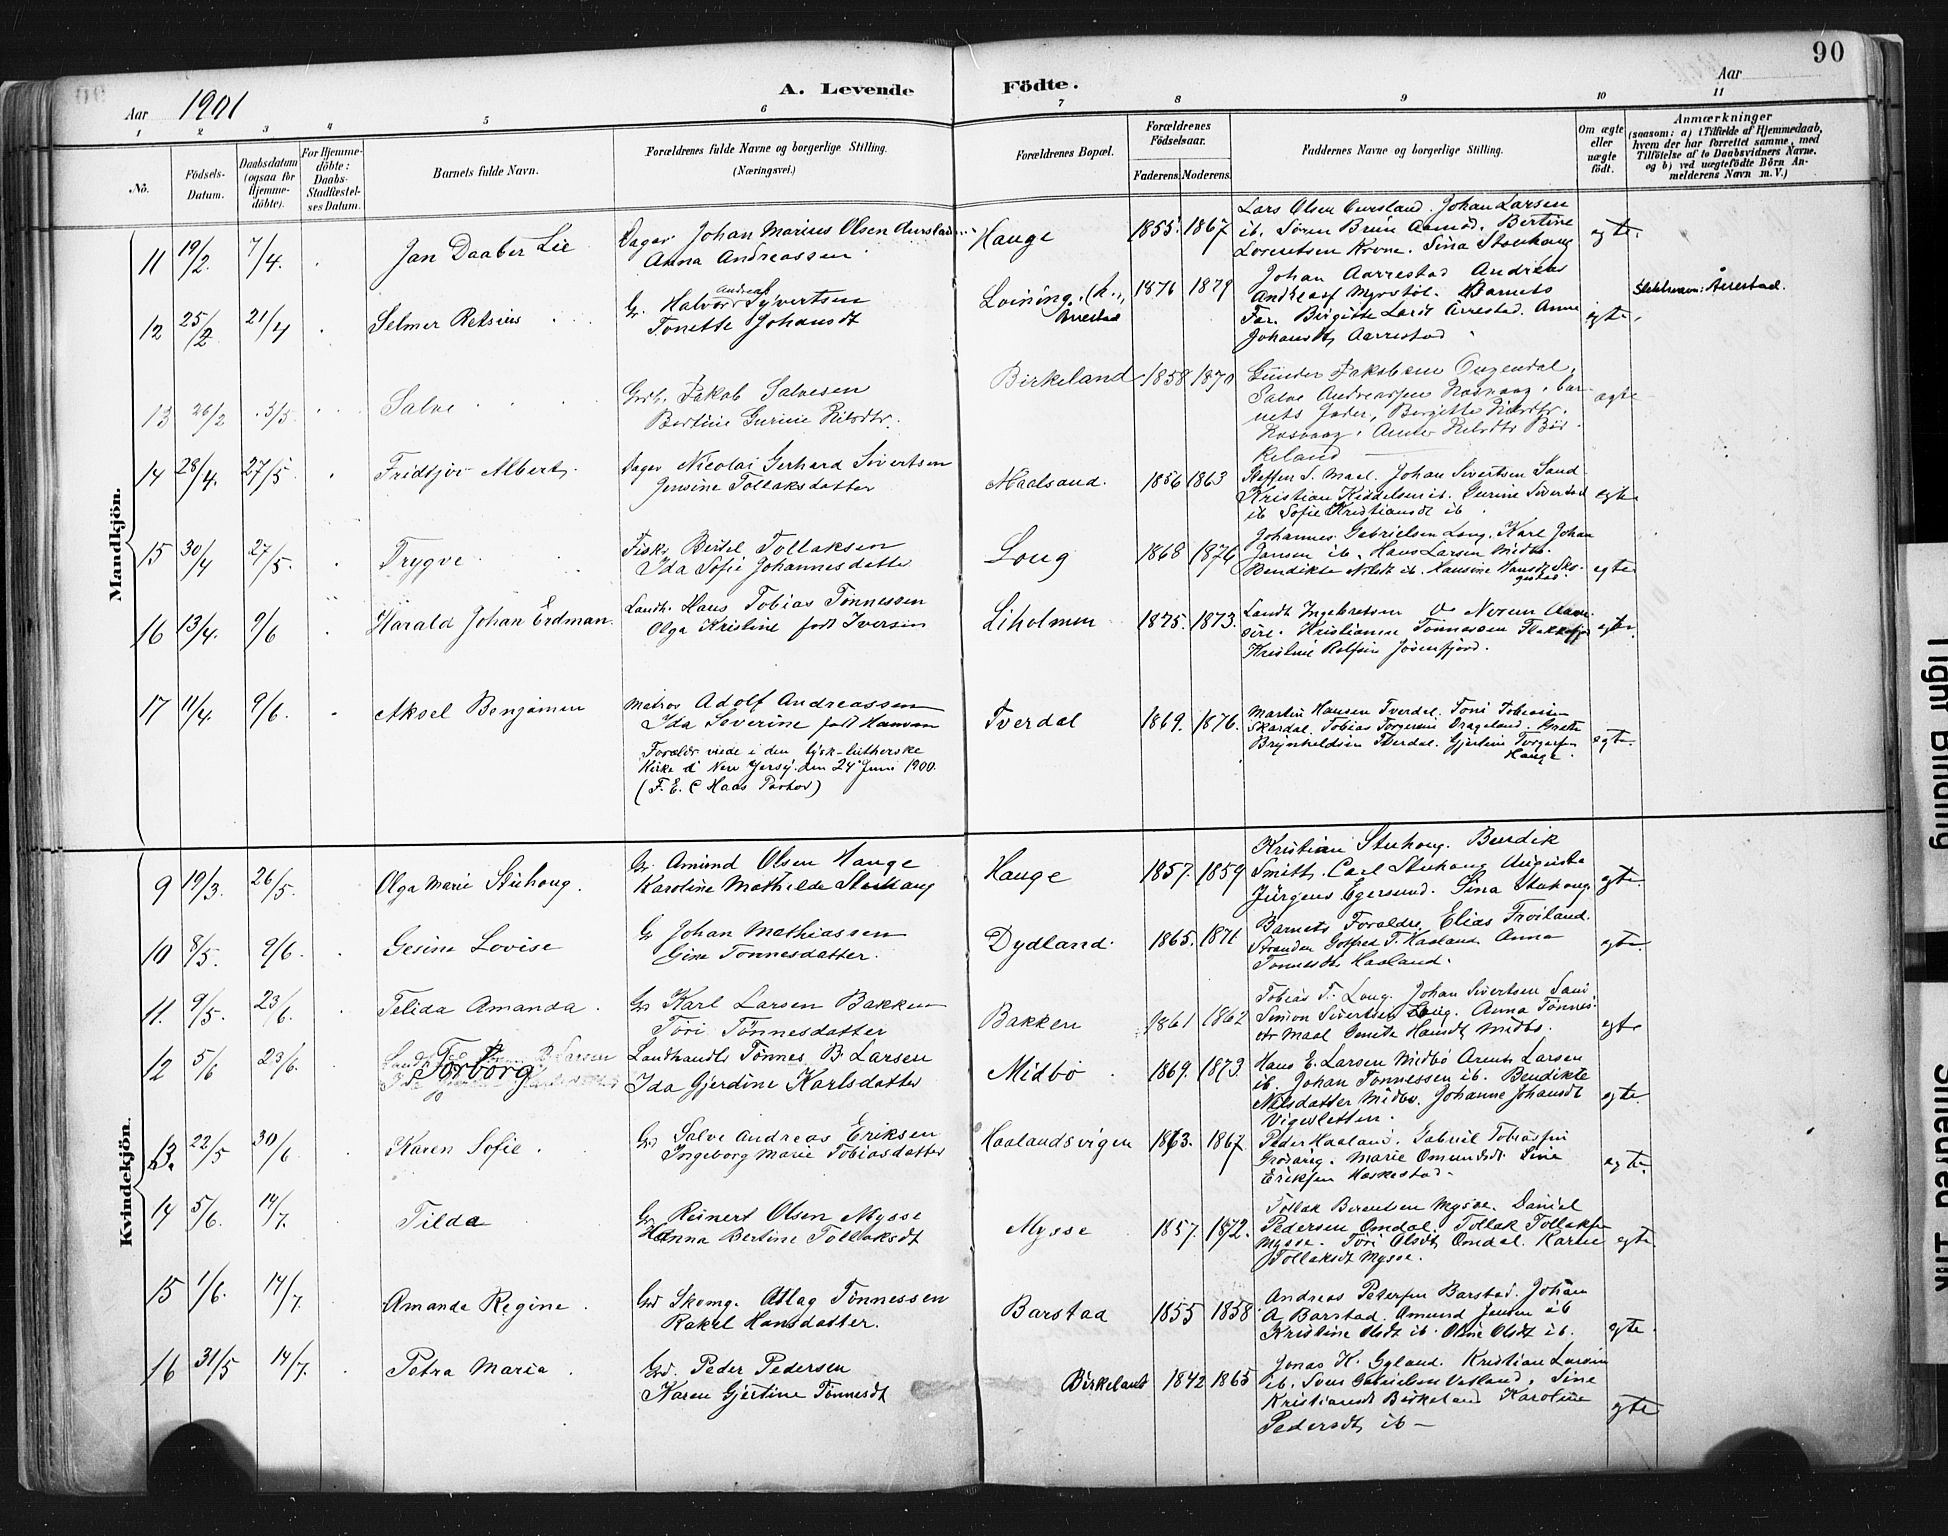 90
Aar 1901
A. Levende Födte.
Aar
1 2 3 4 5 6 7 8 9 10 11
No.
Födsels-Datum.
Daabsdatum (ogsaa for Hjemmedöbte).
For Hjemmedöbte: Daabs-Stadfæstelses Datum.
Barnets fulde Navn.
Forældrenes fulde Navne og borgerlige Stilling. (Næringsvei.)
Forældrenes Bopæl.
Forældrenes Födselsaar.
Faderens. Moderens.
Faddernes Navne og borgerlige Stilling.
Om ægte eller uægte födt.
Anmærkninger
(saasom: a) i Tilfælde af Hjemmedaab, hvem der har forrettet samme, med Tilföielse af to Daabsvidners Navne. og b) ved uægtefödte Börn Anmelderens Navn m. V.)
Mandkjön.
11 19/2. 7/4. Jan Daaber Lie
Johan Marius Olsen
Anna Andreassen
Hauge 1855. 1867
Lars Olsen Johan Larsen
ib. Sören Brun Bertine
Lorentsen Krone. Sina Stuhaug
egte.
12 25/2 21/4 Selmer Retsius
Gr. Halvor Andreas Syvertsen
Tonette Johansdt
Loining. Aarestad 1876 1879
Johan Aarrestad Andreas
Myrstöl. Barnets
Far. Birgitte Larsdt Aarestad. Anne
Johansdt Aarrestad
egte.
Slektsnavn: Årrestad.
13 26/2 5/5 Salve
Grb. Jakob Salvesen
Bertine Gurine
Birkeland 1858 1870
Gunder Jakobsen
Salve Andreassen
nets Fader, Birgitte
keland
ægte
14 28/4. 27/5 Fridtjov Albert
Nicolai Gerhard Sivertsen
Jensine Tollaksdatter
Maalsand. 1856 1863
Steffen S. Maal. Johan Sivertsen Sand
Kristian ib. Gurine
ib Sofie Kristiansdt ib
egte
15 30/4 27/5. Trygve
Fisk. Bertel Tollaksen
Ida Sofie Johannesdatter
Loug 1868 1876
Johannes Gabrielsen Loug. Karl Johan
Jansen ib. Hans Larsen Midbö.
Bendikte Nilsdt ib. Hansine Hansdt
egte
16 13/4. 9/6 Harald Johan Erdman
Landh. Hans Tobias Tönnessen
Olga Kristine födt Iversen
Liholmen 1875. 1873.
Landh Ingebretsen
Kristianne Tönnessen Flekkefj
Kristine Rolfsen Jösenfjord.
egte.
17 11/4. 9/6. Aksel Benjamin
Matros Adolf Andreassen
Ida Severine födt Hansen
Forældr viede i den tysk-lutherske
Kirke i New Jersy. den 24 Juni 1900.
(F. E. C Haas Pastor)
Tverdal 1869. 1876.
Martin Hansen Tverdal. Toni Tobiasen
Skardal. Tobias Torgersen Drageland. Grete
Brynhildsen Tverdal. Gjertine Torgersen
Hauge.
egte.
Kvindekjön.
9 19/3. 26/5. Olga Marie Stuhaug.
Gr. Amund Olsen Hauge
Karoline Mathilde Stuhaug
Hauge 1857. 1859
Kristian Stuhaug. Bendik
Smith. Carl Stuhaug Augusta
Jürgens Egersund. Sina Stuhaug
egte.
10 8/5. 9/6. Gesine Lovise
Gr Johan Mathiassen
Gine Tonnesdatter.
Dydland. 1865. 1871
Barnets Foraldre. Elias Fröiland.
Stranden Gotfred T. Haaland. Anna
Tonnesdt Haaland.
egte.
11. 9/5. 23/6. Telida Amanda.
Gr Karl Larsen Bakken
Töri Tönnesdatter
Bakken 1861 1862
Tobias T. Loug. Johan Sivertsen Sand
Simon Sivertsen Loug. Anna Tönnes
dtr Maal Hansdt Midbö.
egte
12 5/6 23/6. Torborg
Landhandl. Tönnes B Larsen
Ida Gjerdine Karlsdatter
Midbö 1869. 1873
Hans E. Larsen Midbö Arent Larsen
ib. Johan Tönnessen ib. Bendikte
Nilsdatter Midbö. Johanne Johansdt
Vigesletten.
egte.
13. 22/5 30/6. Karen Sofie.
Gr Salve Andreas Eriksen
Ingeborg Marie Tobiasdatter
Haalandsvigen 1863. 1867
Peder Haaland. Gabriel Tobiassen
Marie Omundsdt. Sine
Eriksen Haskestad.
egte.
14 5/6. 14/7. Tilda
Gr Reinert Olsen Mysse
Hanna Bertine Tollaksdt
Mysse 1857. 1872.
Tollak Berentsen Mysse. Daniel
Pedersen Omdal. Tollak Tollaksen
Mysse. Töri Olsdt Omdal. Karen
Tollaksdt Mysse.
egte.
15 1/6. 14/7. Amanda Regine.
Grd Skomg. Atlag Tönnessen
Rakel Hansdatter.
Barstad 1855 1858
Andreas Petersen Barstad. Johan
A Barstad. Omund Jansen ib
Kristine Olsdt ib. Oline Olsdt ib.
egte.
16 31/5 14/7. Petra Maria.
Grd. Peder Pedersen
Karen Gjertine Tönnesdt
Birkeland 1842 1865
Jonas K. Gyland. Kristian Larsen
ib. Sven Gabrielsen Vatland. Sine
Kristiansdt Birkeland Karoline
Pedersdt ib —
egte